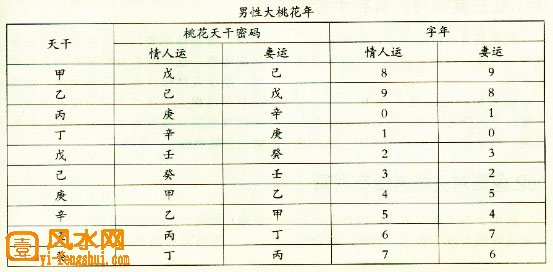 男性大桃花年
天干 桃花天干密码 字年
情人运 妻运 情人运 妻运
甲 戊 己 8 9
乙 己 戊 9 8
丙 庚 辛 0 1
丁 辛 庚 1 0
戊 壬 癸 2 3
己 癸 壬 3 2
庚 甲 乙 4 5
辛 乙 甲 5 4
丙 丁 6 7
癸 丁 丙 7 6
壹 风水网
yi-fengshui.com